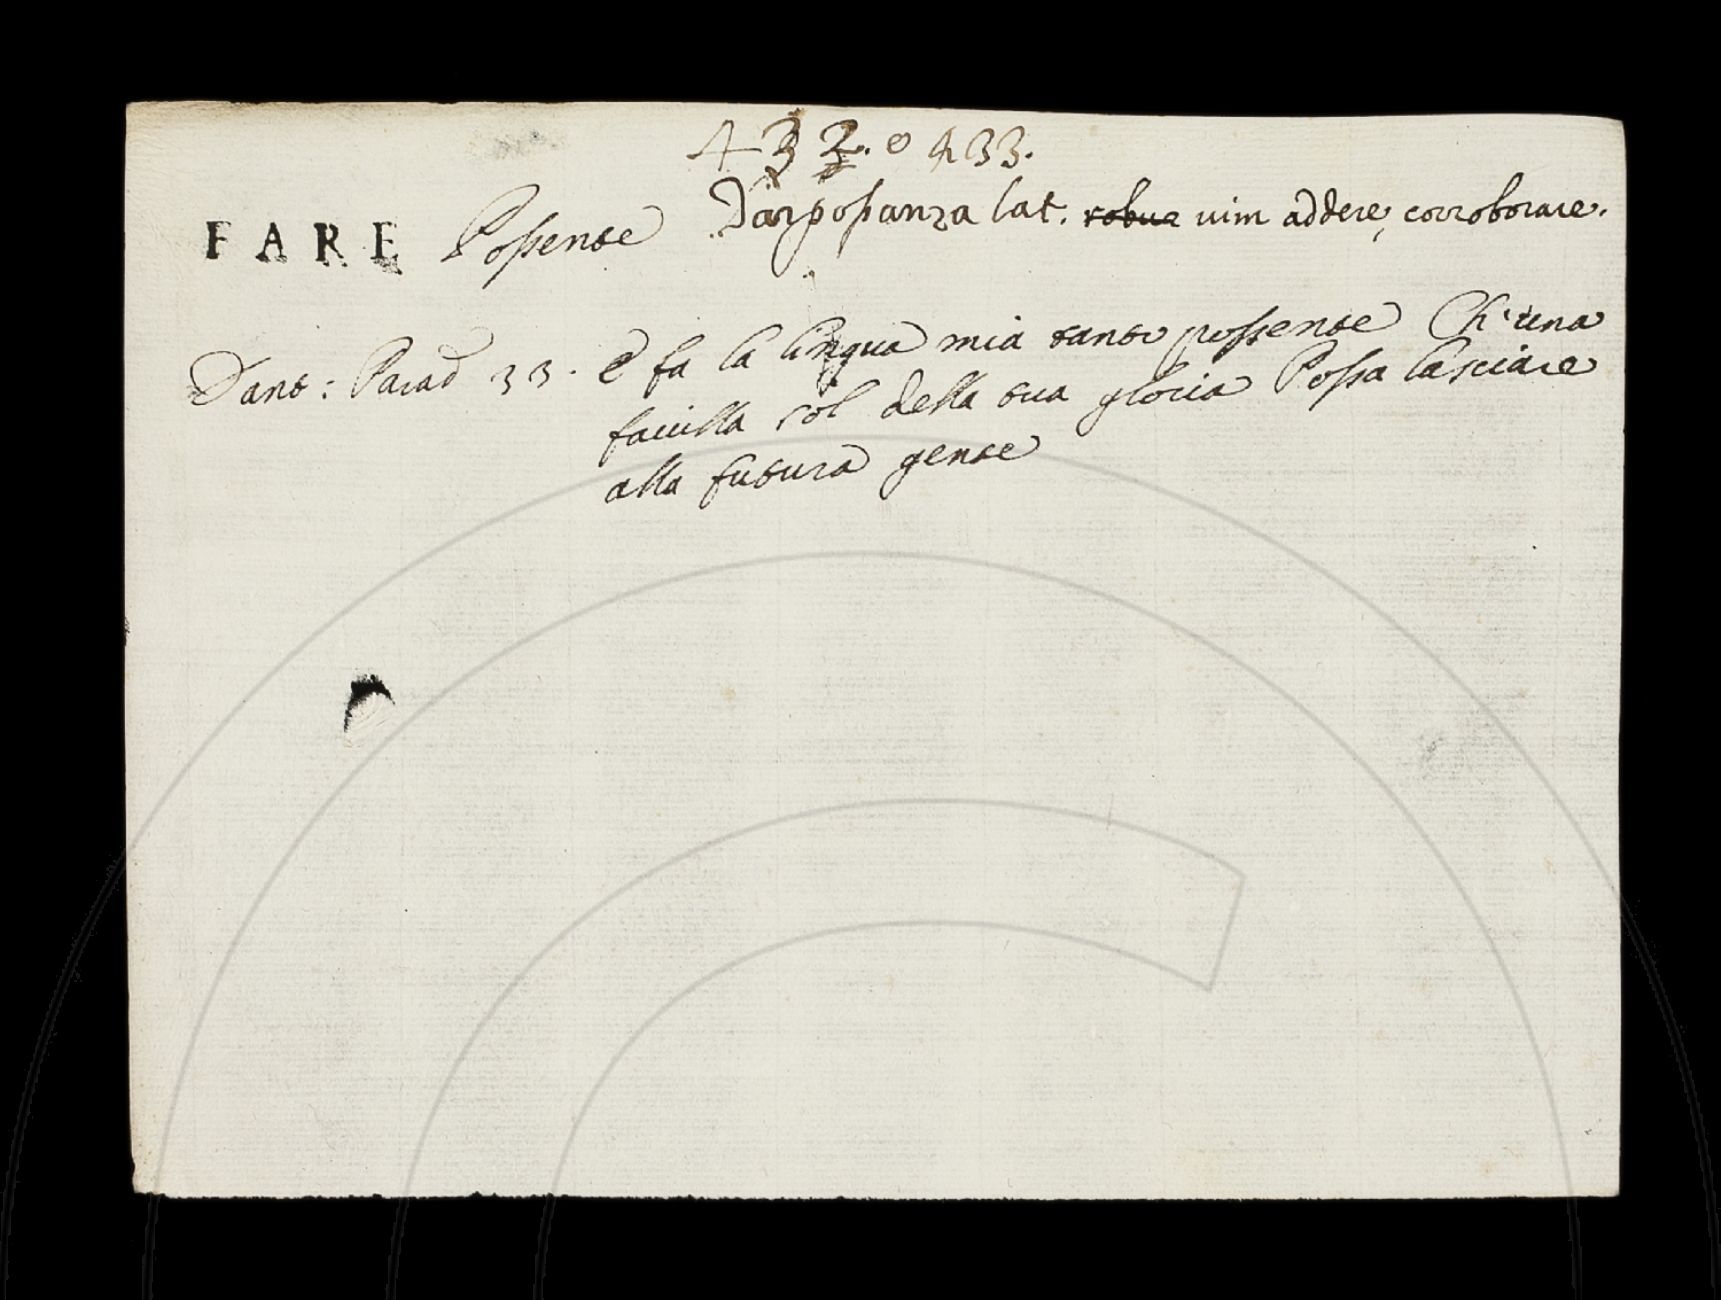 432. e 433.
FARE Possente Dar possanza lat. robur vim addere, corroborare.
Dant: Parad 33. E fa la lingua mia tanto possente Ch'una
favilla sol della tua gloria Possa lasciare
alla futura gente